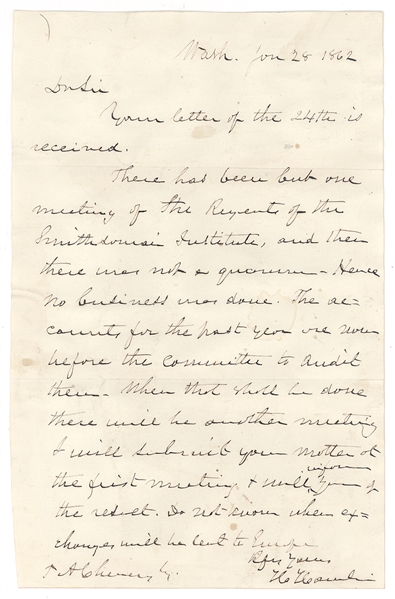 Wash. Jan 28 1862
Dr Sir
Your letter of the 24th is
received.
There has been but one
meeting of the Regents of the
Smithsonian Institute, and then
there was not a quorum - Hence
no business was done. The ac-
counts for the past year are now
before the committee to audit
them - When that shall be done
there will be another meeting
I will submit your matter at
the first meeting & will inform you of
the result. Do not know when ex-
changes will be sent to Europe
Yours
H Hamlin